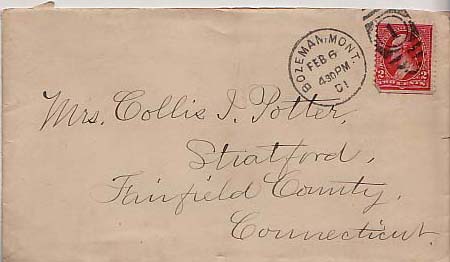 BOZEMAN, MONT.
FEB 6
4 30 PM
01
1
2 2
TWO CENTS
Mrs. Collis I. Potter,
Stratford,
Fairfield County,
Connecticut.